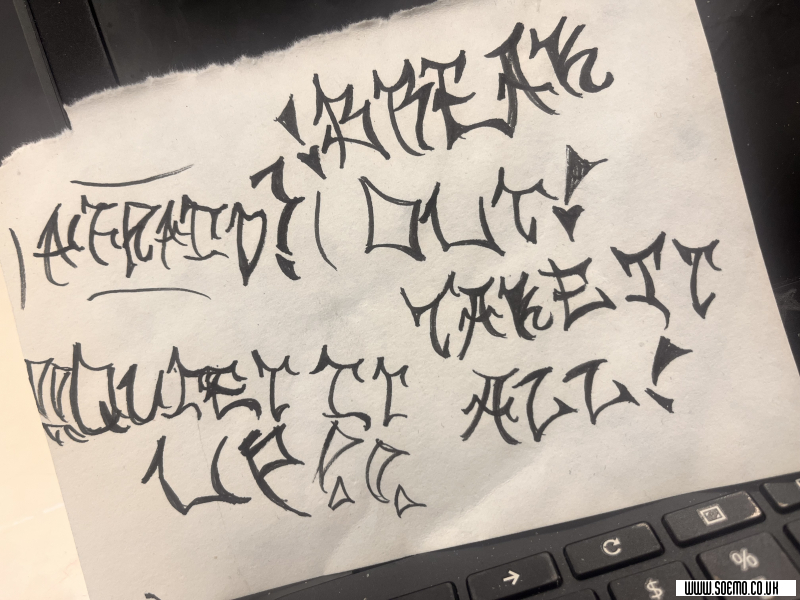 !BREAK
OUT!
AFRAID?
TAKE IT
ALL!
!!QUIET IT
UP!!
$
%
WWW.SOEMO.CO.UK